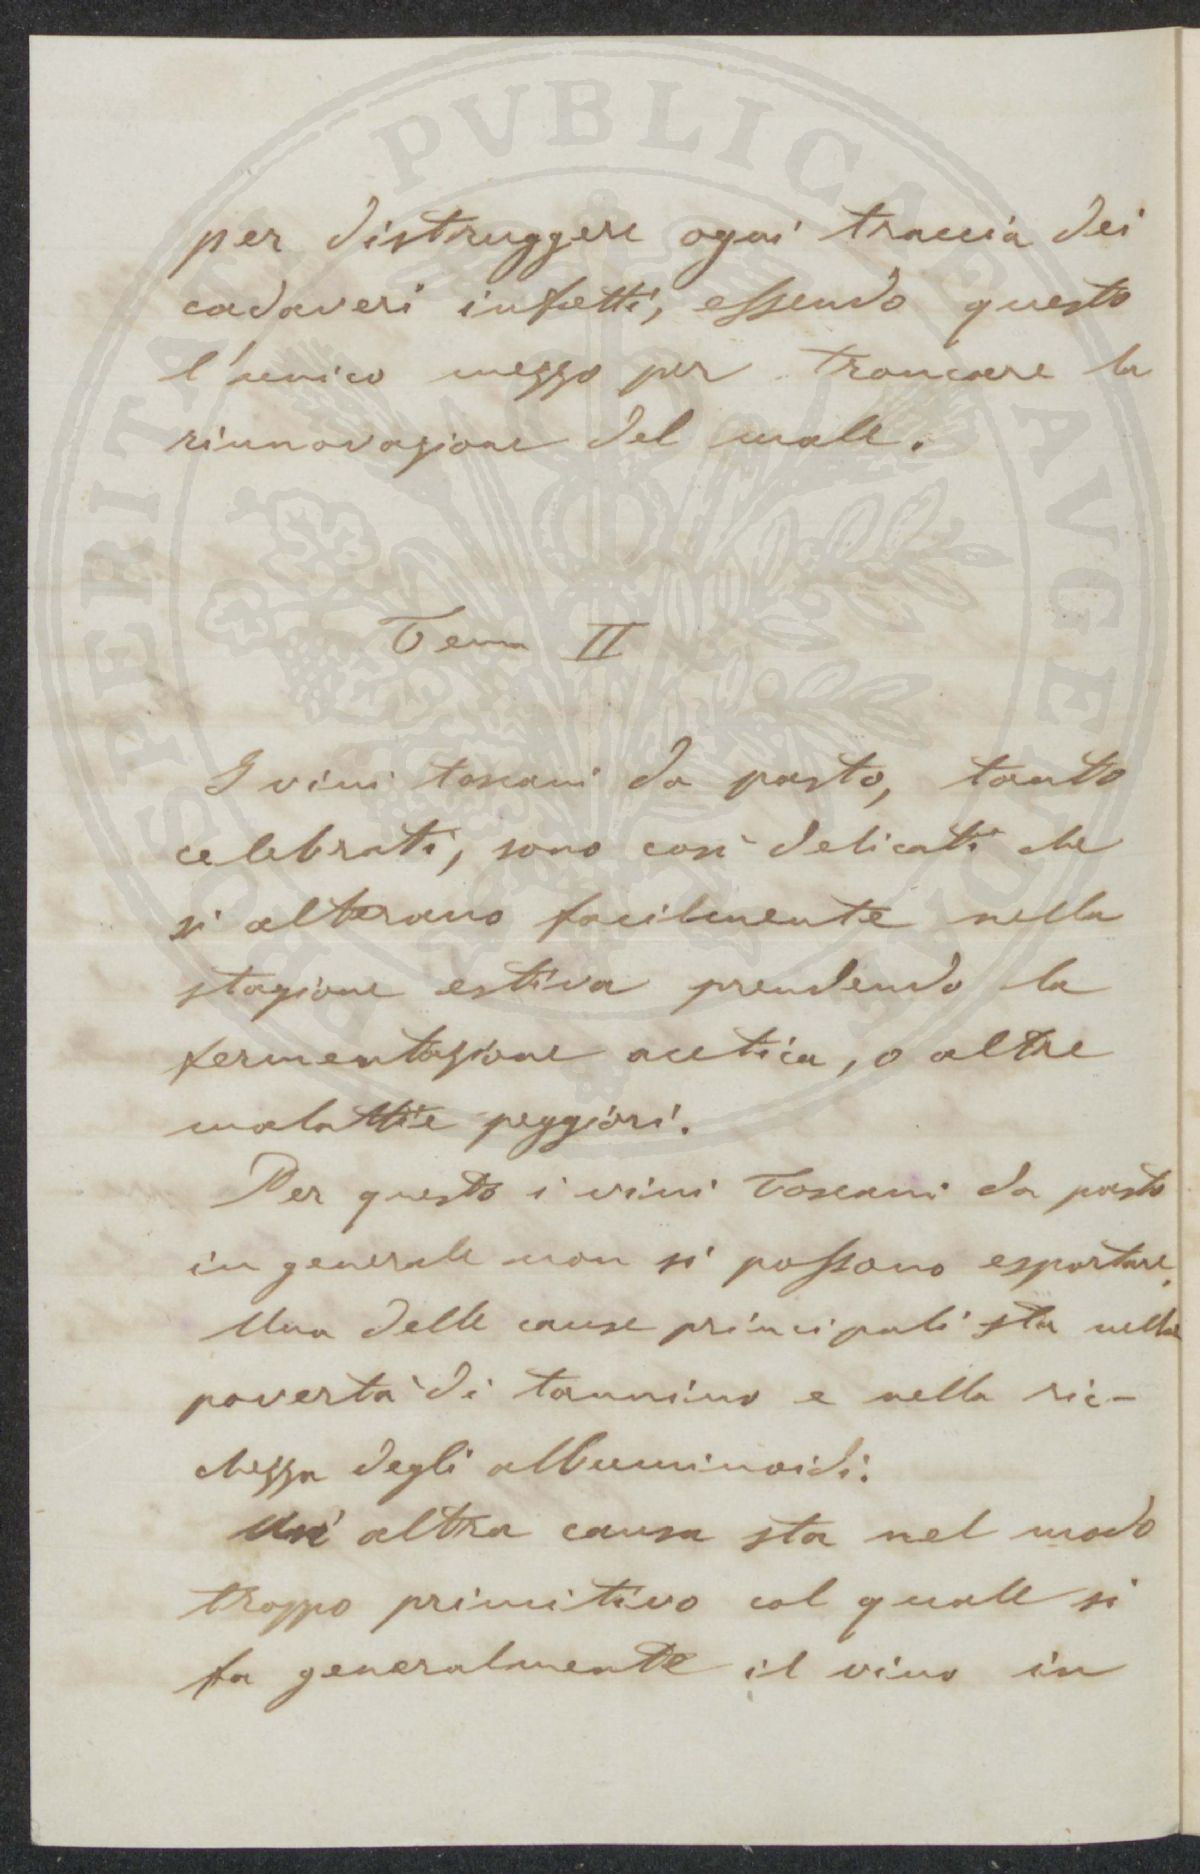 per distruggere ogni traccia dei
cadaveri infetti, essendo questo
l'unico mezzo per troncare la
rinnovazione del male.
Tema II
I vini toscani da pasto, tanto
celebrati, sono così delicati che
si alterano facilmente nella
stagione estiva prendendo la
fermentazione acetica, o altre
malattie peggiori.
Per questo i vini Toscani da pasto
in generale non si possono esportare.
Una delle cause principali sta nella
povertà di tannino e nella ric-
chezza degli albuminoidi.
Un'altra causa sta nel modo
troppo primitivo col quale si
fa generalmente il vino in